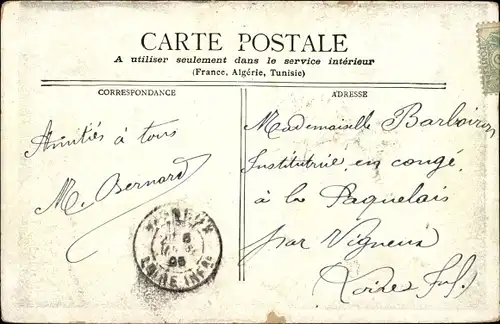 CARTE POSTALE
A utiliser seulement dans le service intérieur
(France, Algérie, Tunisie)
CORRESPONDANCE
ADRESSE
Amitiés à tous
M. Bernard
Mademoiselle Barboiron
Institutrice en congé
à la Paquelais
par Vigneux
Loire Inf.
VIGNEUX
LOIRE INFRE